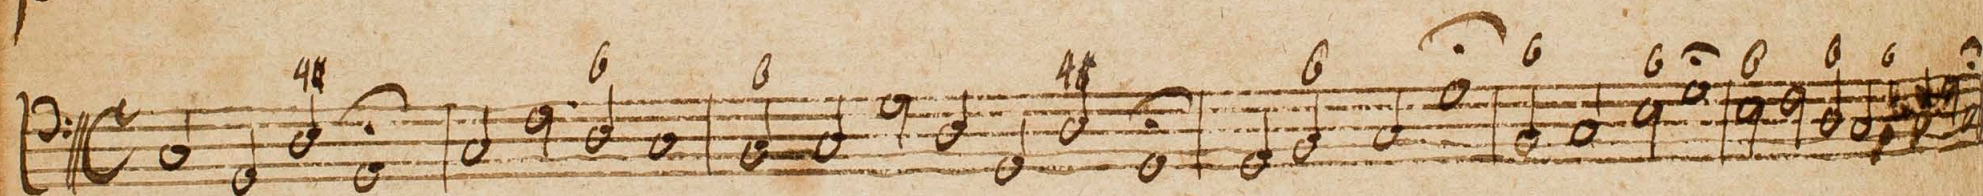 4# 6 6 4# 6 6 6 6 6 6